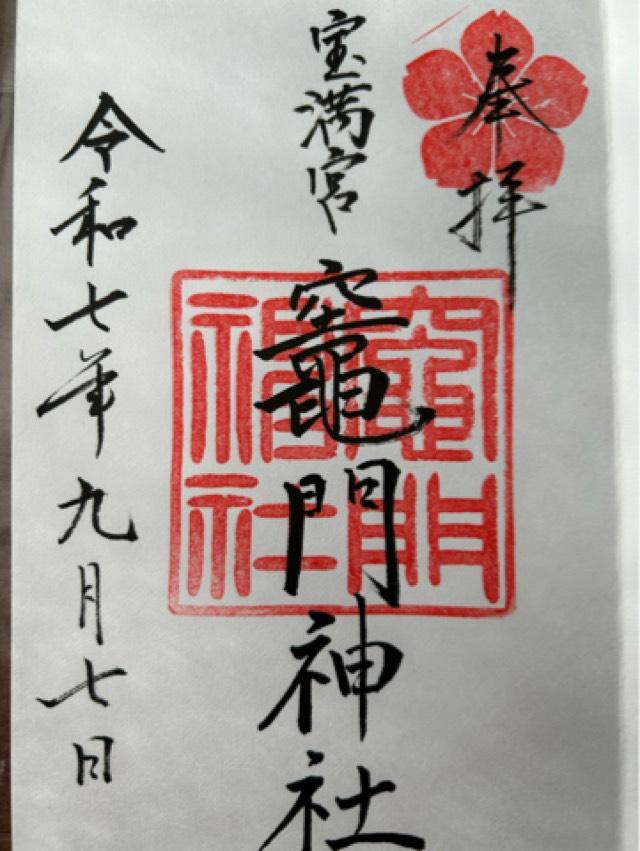 奉拝
宝満宮
竈門神社
竈門
神社
令和七年九月七日